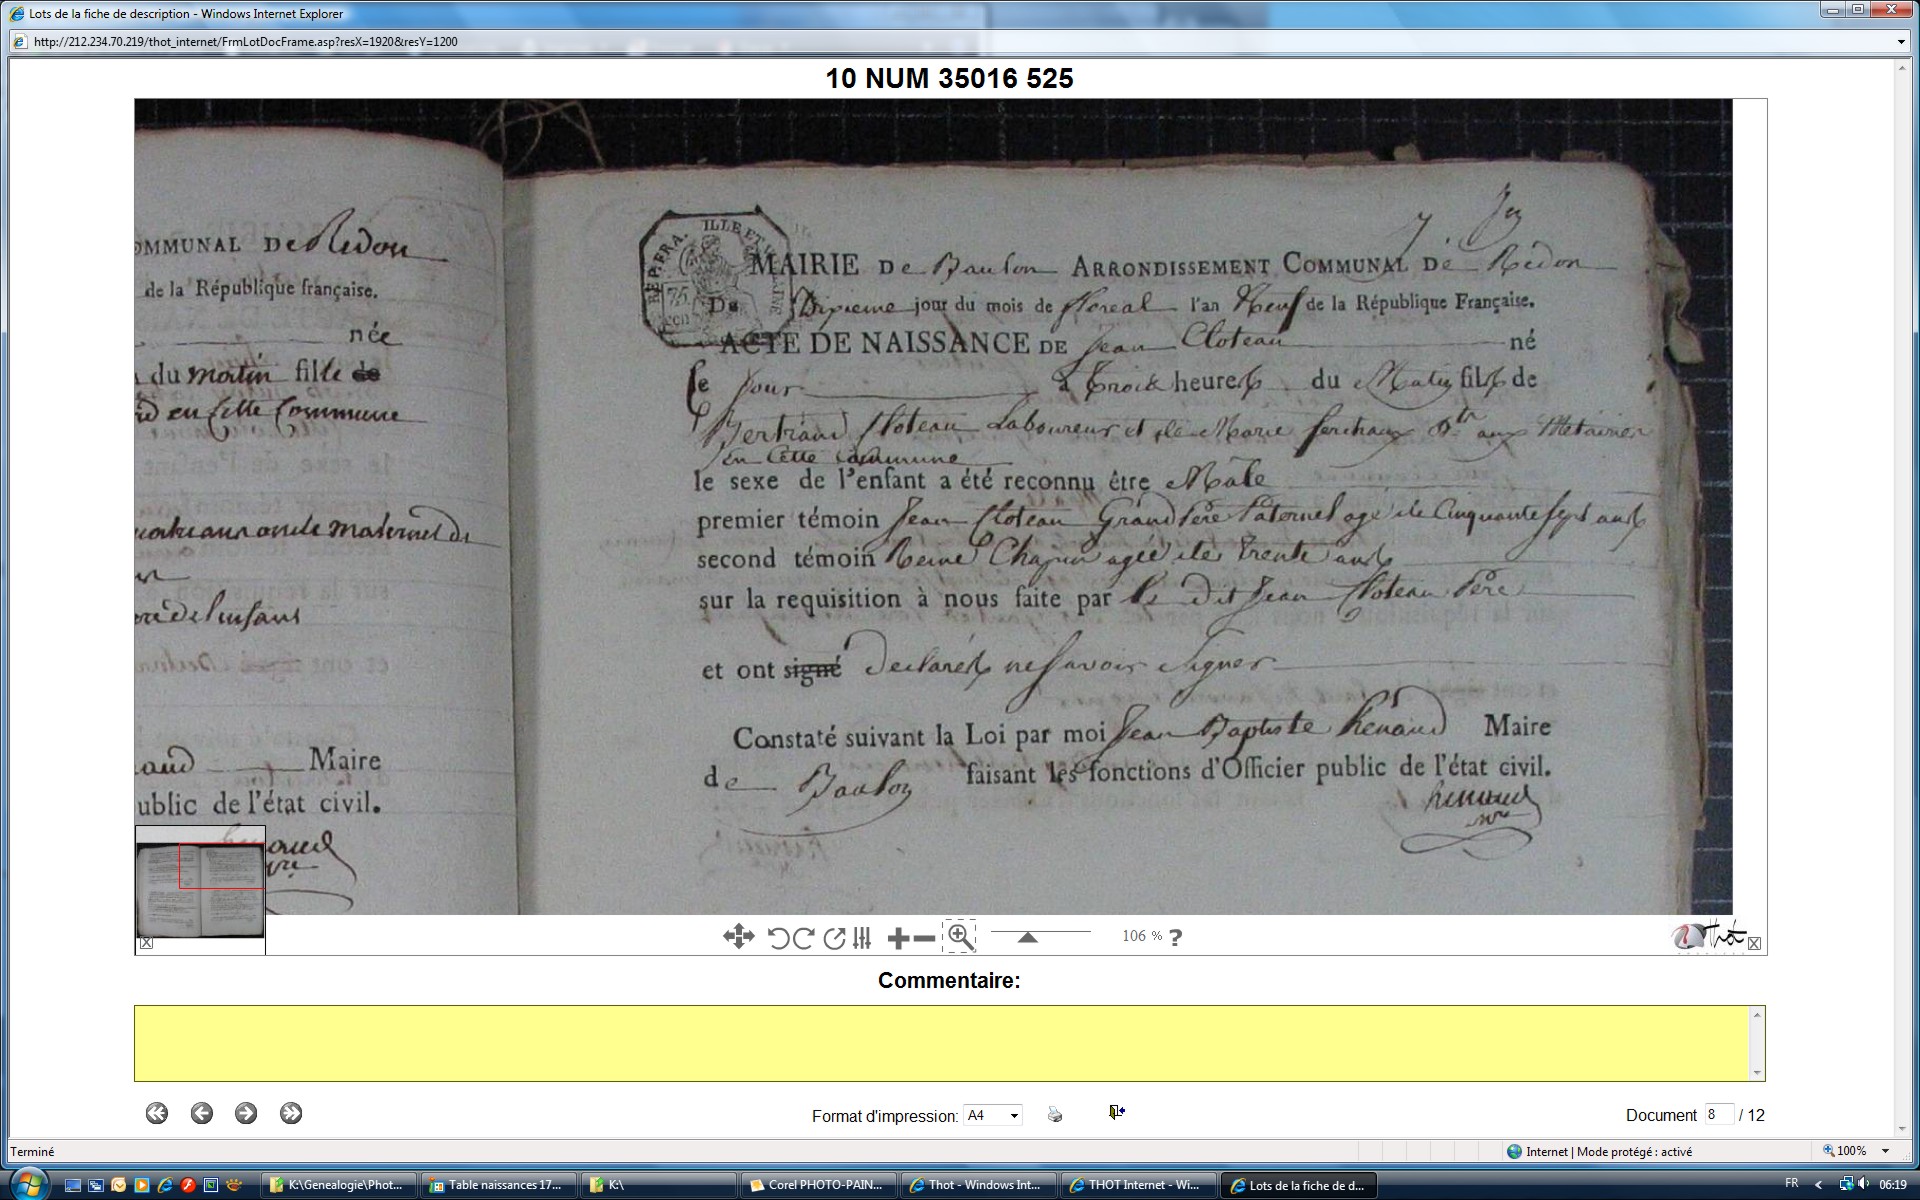 Lots de la fiche de description - Windows Internet Explorer
http://212.234.70.219/thot_internet/FrmLotDocFrame.asp?resX=1920&resY=1200
10 NUM 35016 525
OMMUNAL De Redon
de la République française.
née
du matin fille de
en Cette Commune
oncle maternel de
de l'enfant
aud Maire
ublic de l'état civil.
REP. FRA. ILLE ET VILAINE
75
cen
7
MAIRIE De Baulon ARRONDISSEMENT COMMUNAL De Redon
Du Dixieme jour du mois de floreal l'an Neuf de la République Française.
ACTE DE NAISSANCE DE Jean Cloteau né
le jour à trois heures du Matin fils de
Bertrand Cloteau Laboureur et de Marie ferchaux aux Métairies
en Cette Commune
le sexe de l'enfant a été reconnu être Mâle
premier témoin Jean Cloteau Grand Père Paternel agé de Cinquante Sept ans
second témoin Reine Chapin agée de trente ans
sur la requisition à nous faite par le dit Jean Cloteau Père
et ont signé Declarés ne Savoir Signer
Constaté suivant la Loi par moi Jean Baptiste Renaud Maire
de Baulon faisant les fonctions d'Officier public de l'état civil.
Renaud
106 % ?
Thot
Commentaire:
Format d'impression: A4
Document 8 / 12
Terminé
Internet | Mode protégé : activé
100%
K:\Genealogie\Phot...
Table naissances 17...
K:\
Corel PHOTO-PAIN...
Thot - Windows Int...
THOT Internet - Wi...
Lots de la fiche de d...
FR
06:19